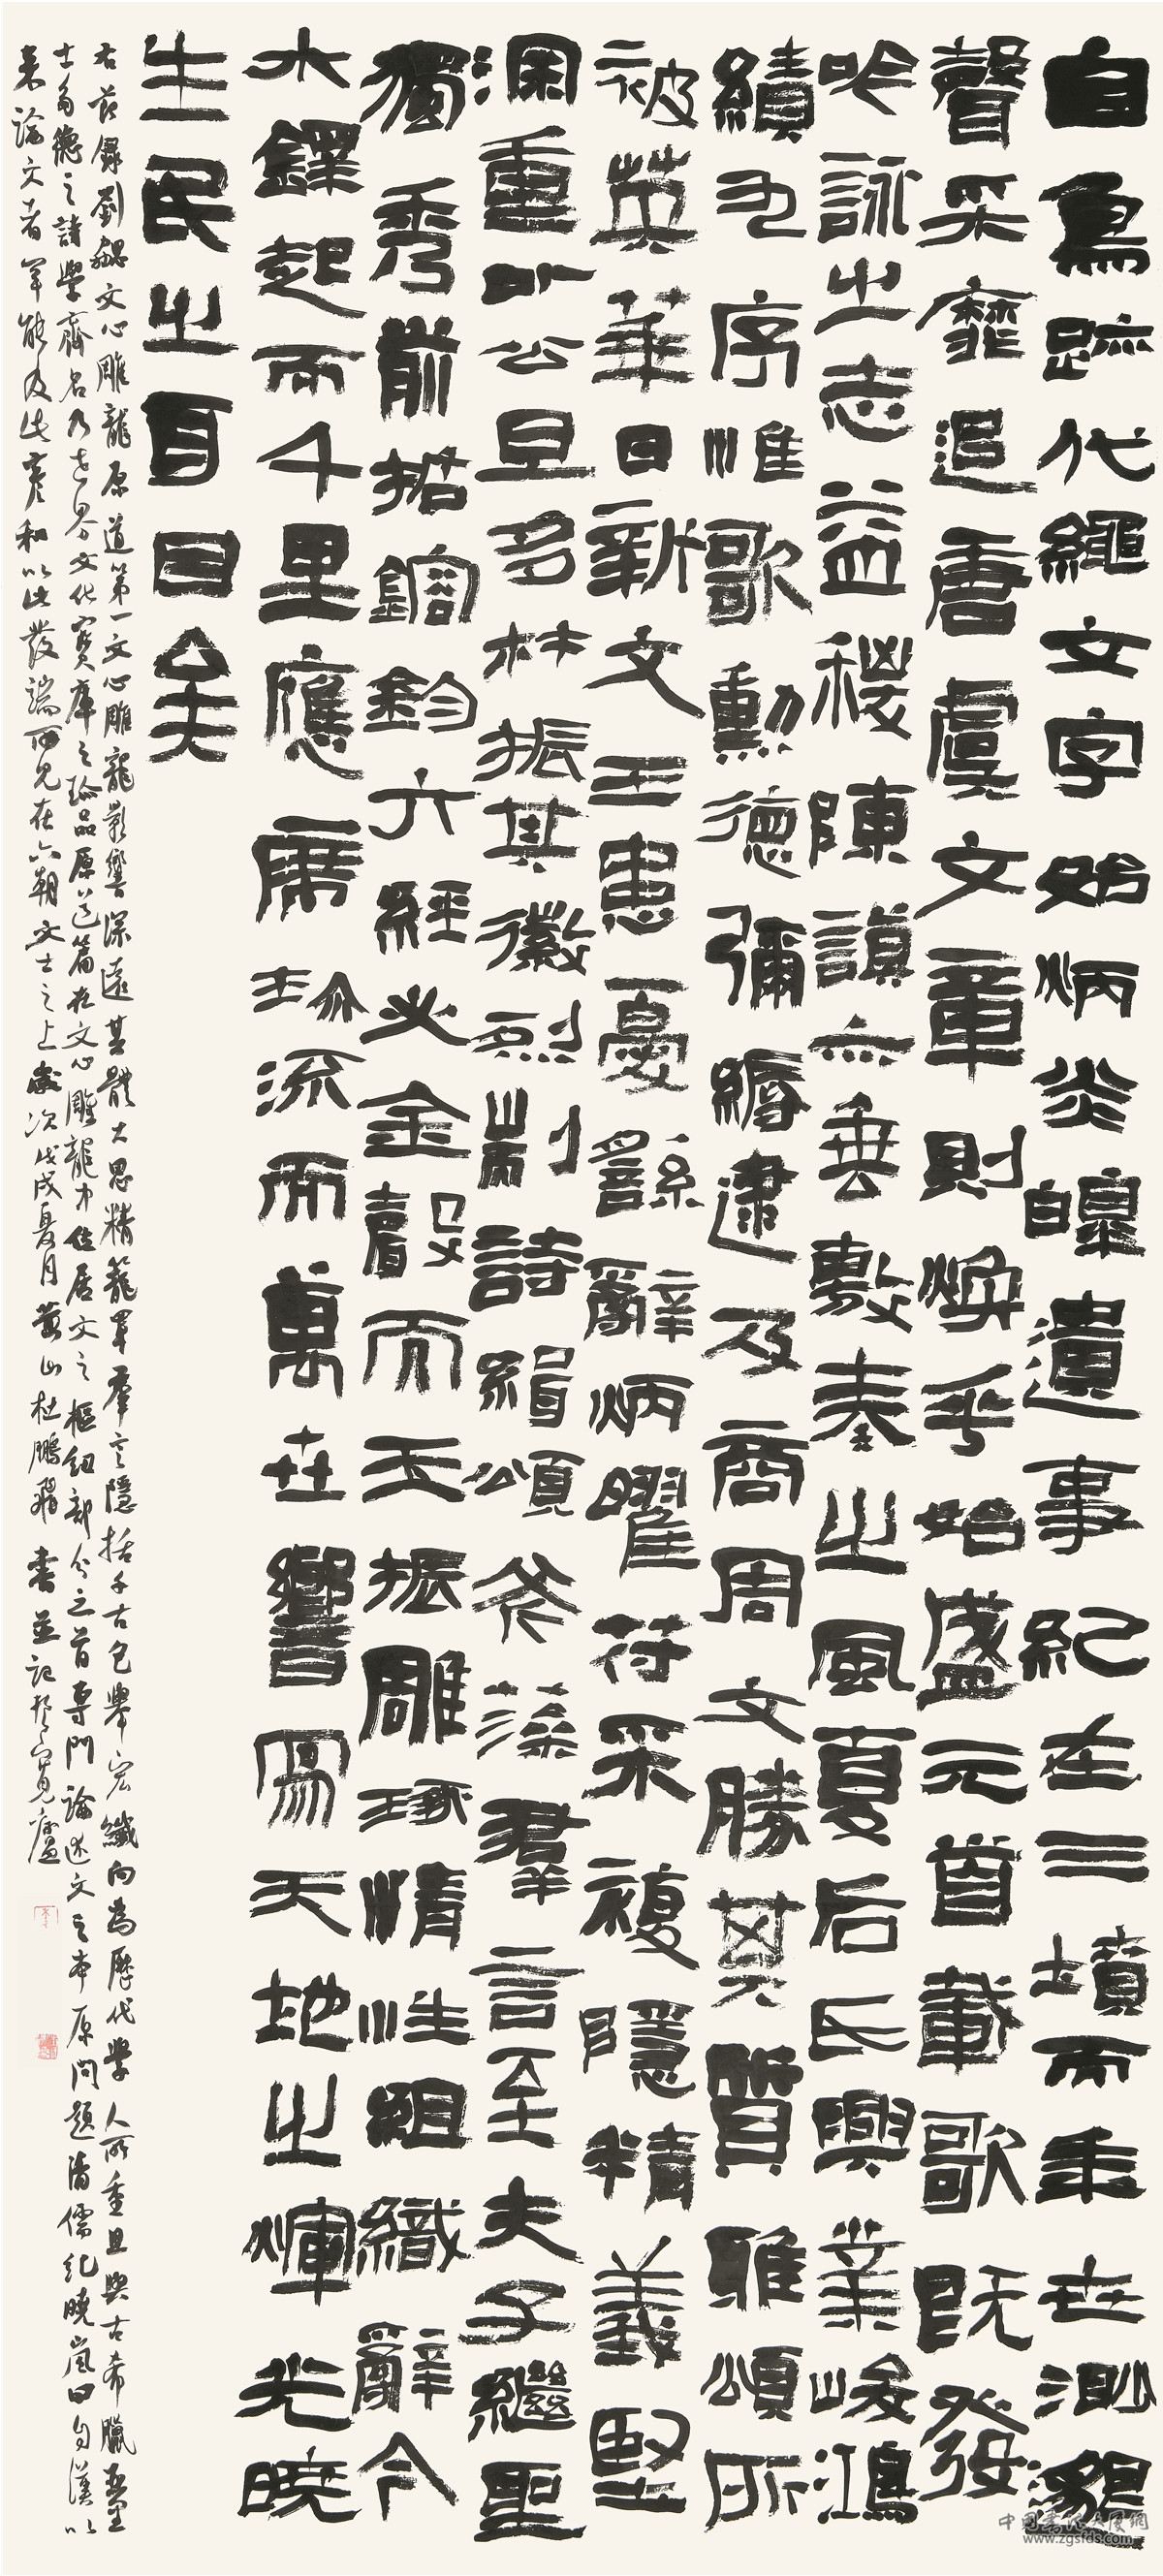 自鳥跡代繩文字始炳炎皞遺事紀在三墳而年世渺邈
聲采靡追唐虞文章則煥乎始盛元首載歌既發
吟詠之志益稷陳謨亦垂敷奏之風夏后氏興業峻鴻
績九序惟歌勳德彌縟逮及商周文勝其質雅頌所
被英華日新文王患憂繇辭炳曜符采複隱精義堅
深重以公旦多材振其徽烈剬詩緝頌斧藻群言至夫子繼聖
獨秀前哲鎔鈞六經必金聲而玉振雕琢情性組織辭令
木鐸起而千里應席珍流而萬世響寫天地之輝光曉
生民之耳目矣
右節錄劉勰文心雕龍原道第一文心雕龍影響深遠其體大思精籠罩羣言隱括千古包舉宏纖向為歷代學人所重且與古希臘亞里
士多德之詩學齊名乃世界文化寶庫之珍品原道篇在文心雕龍中位居文之樞紐部分之首專門論述文之本原問題清儒紀曉嵐曰自漢以
來論文者罕能及此彥和以此發端所見在六朝文士之上歲次戊戌夏月黃山杜鵬飛書並記於寬廬
中国书法大厦網
www.zgsfds.com